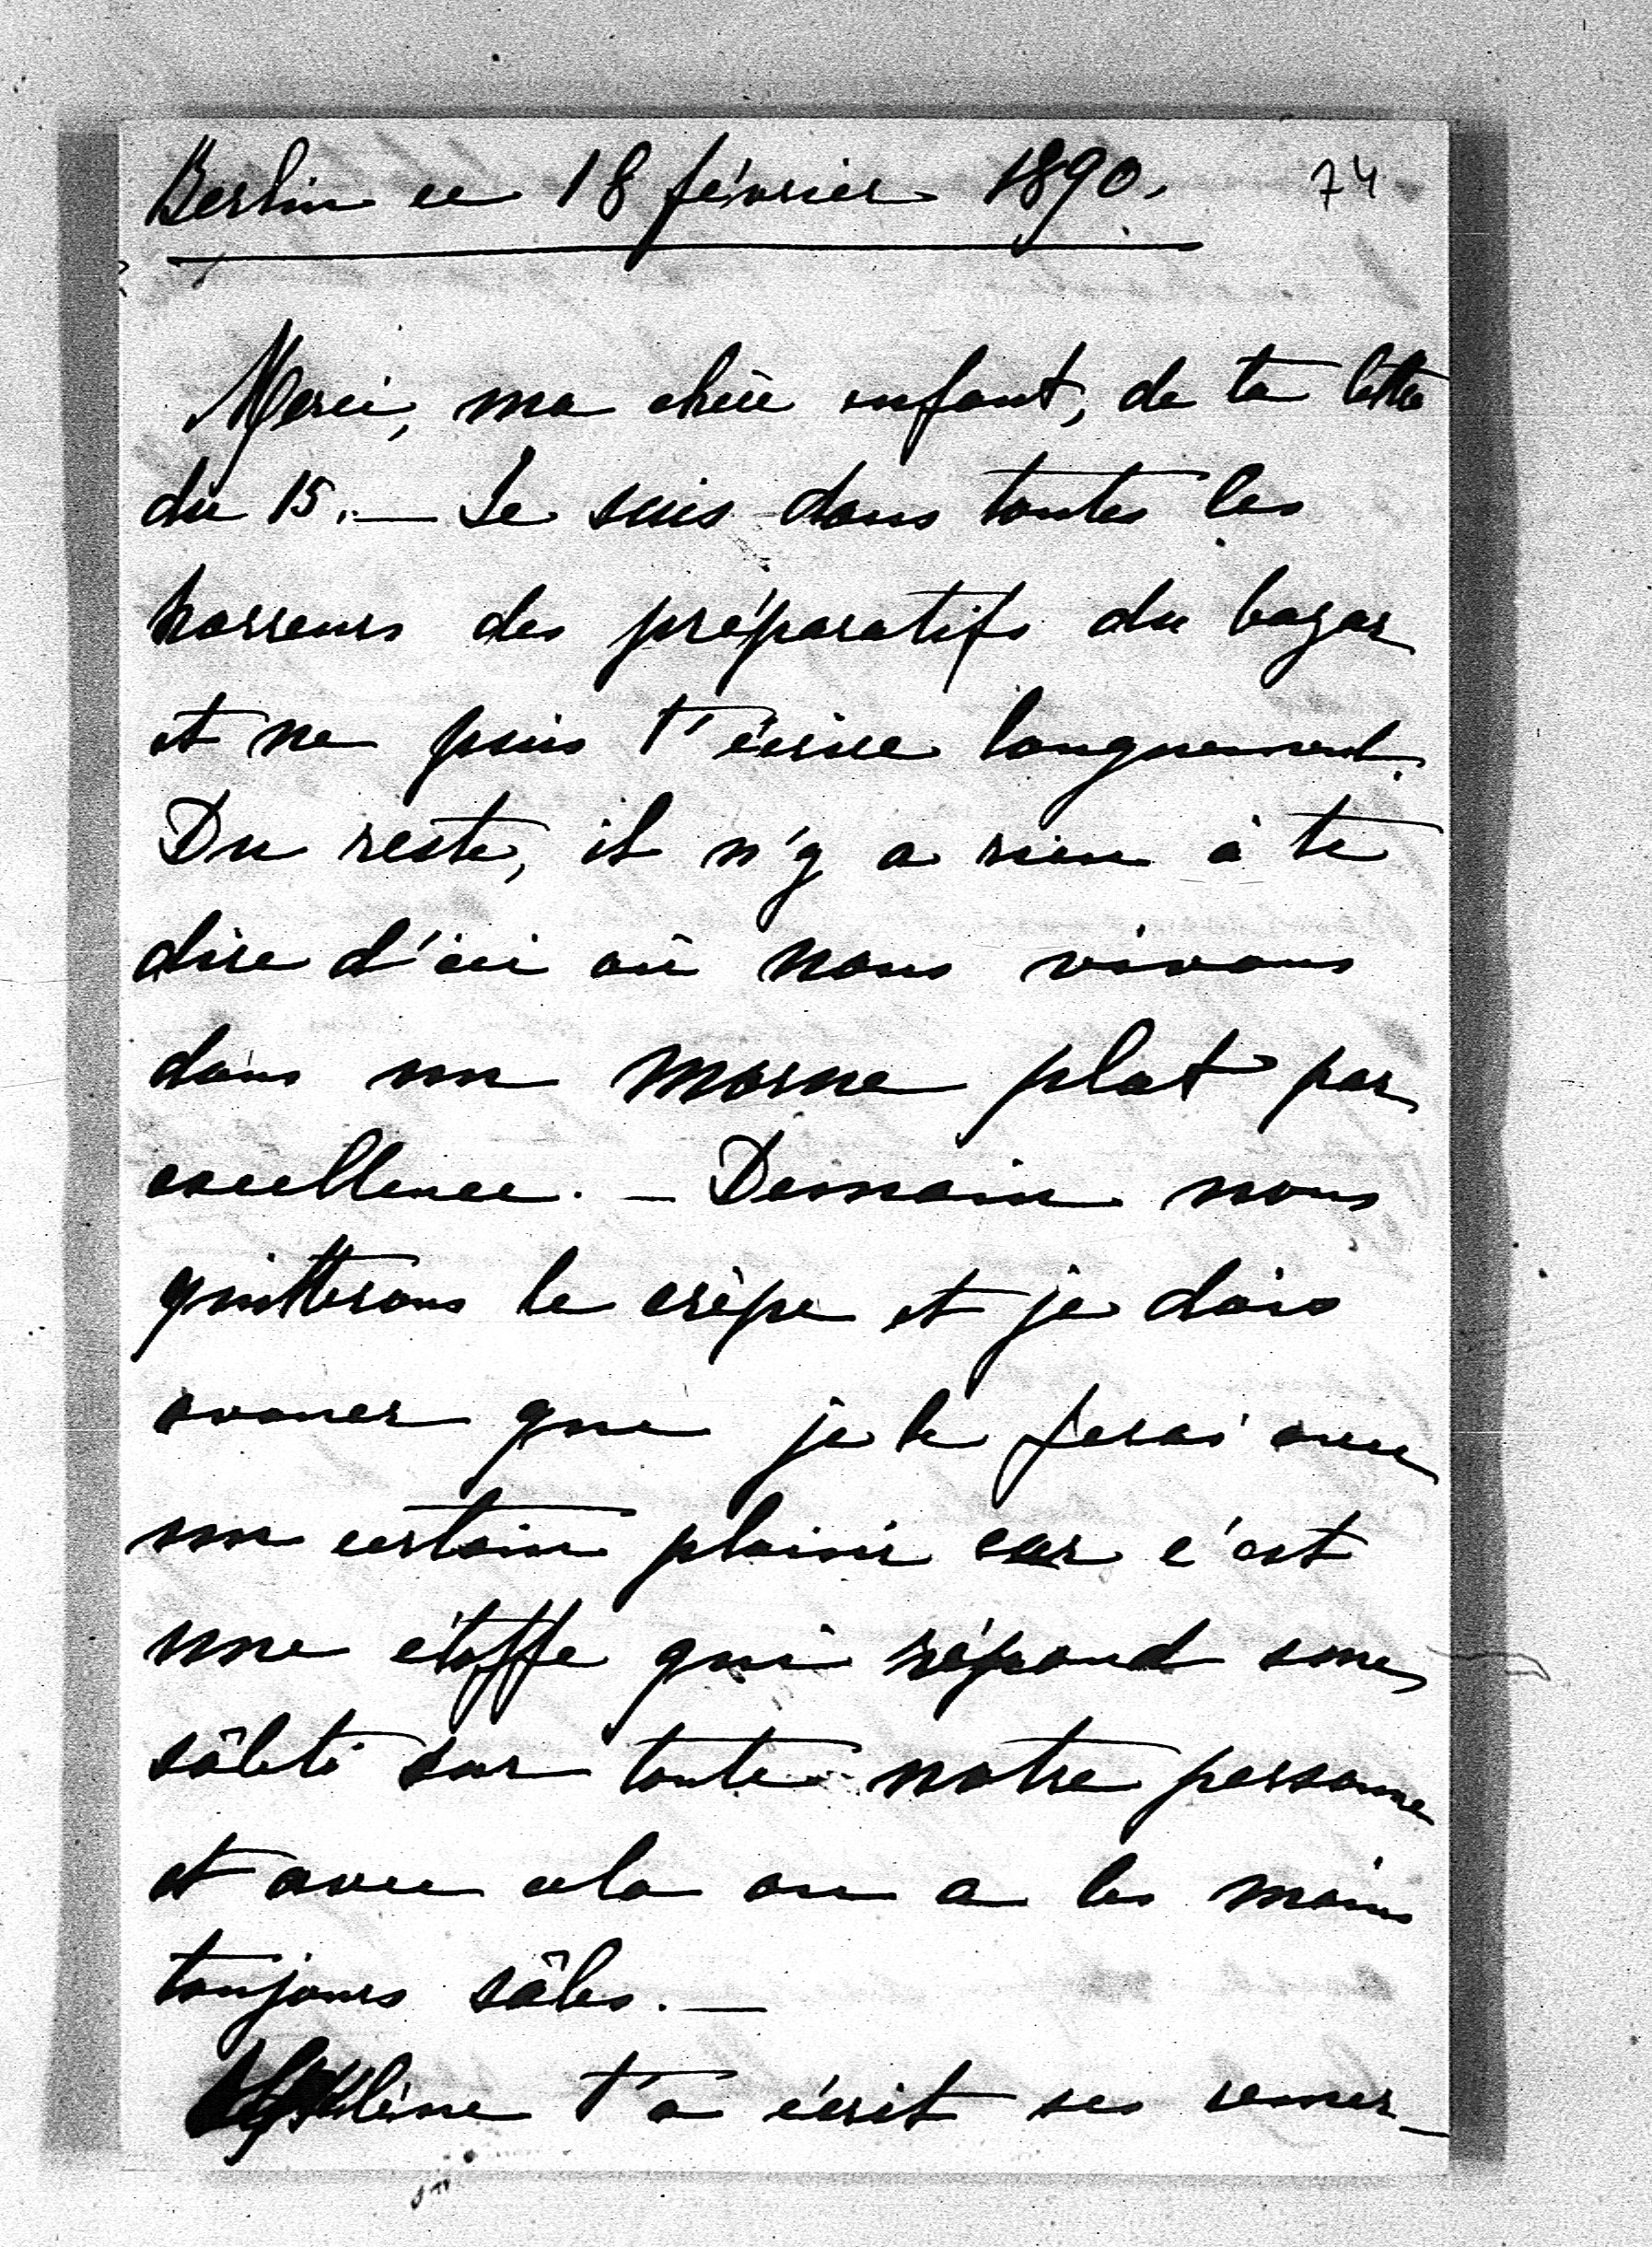 Berlin ce 18 février 1890. 74
Merci, ma chère enfant, de ta lettre
du 15. — Je suis dans toutes les
horreurs des préparatifs du bazar
et ne puis t'écrire longuement.
Du reste, il n'y a rien à te
dire d'ici où nous vivons
dans un morne plat par
excellence. — Demain nous
quitterons le crêpe et je dois
avouer que je le ferai avec
un certain plaisir car c'est
une étoffe qui répand une
sâleté sur toute notre personne
et avec cela on a les mains
toujours sâles. —
Hélène t'a écrit ses remer-